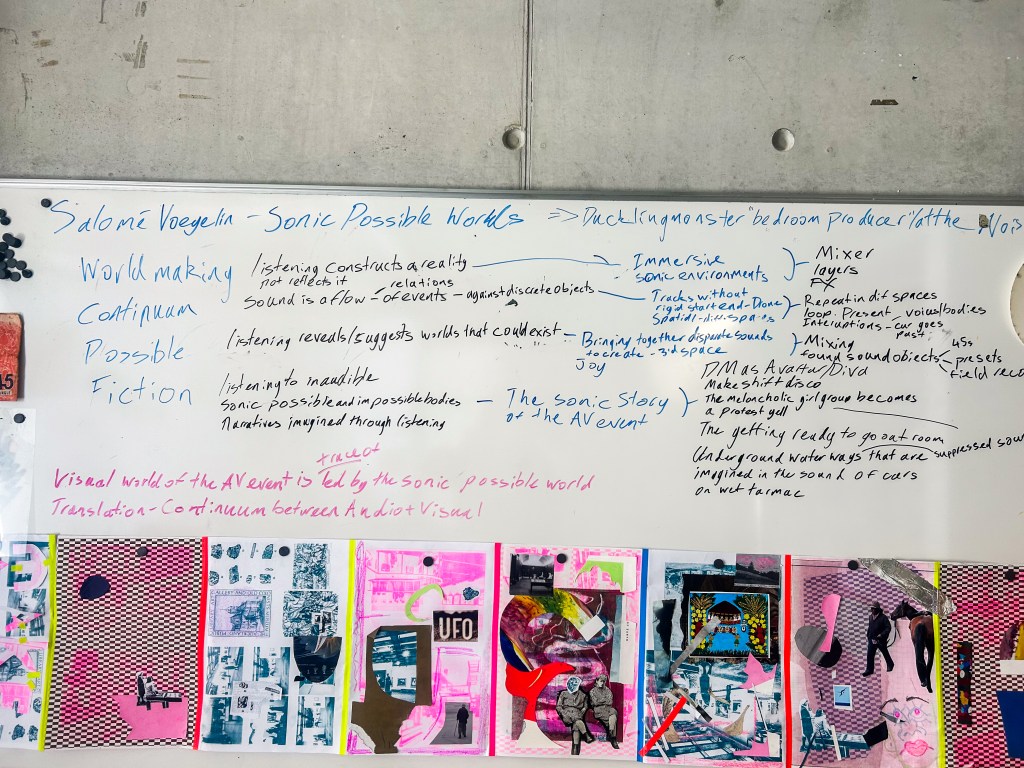 Salomé Voegelin - Sonic Possible Worlds => Ducklingmonster "bedroom producer" at the Nois
World making
Continuum
Possible
Fiction
listening constructs a reality
not reflects it relations
Sound is a flow - of events - against discrete objects
listening reveals/suggests worlds that could exist -
listening to inaudible
Sonic possible and impossible bodies
Narratives imagined through listening
Immersive
sonic environments
Tracks without
rigid start end - Drone
Spatial - diff spaces
Bringing together disparate sounds
to create - 3rd space
Joy
The Sonic Story
of the AV event
Mixer
layers
FX
Repeat in dif spaces
loop. Present, voices/bodies
Interuptions - car goes
past.
Mixing
found sound objects
45s
presets
field reco
DM as Avatar/Diva
Makeshift disco
The melancholic girl group becomes
a protest yell
The getting ready to go out room
Underground water ways that are suppressed sou
imagined in the sound of cars
on wet tarmac
trace of
Visual world of the AV event is led by the sonic possible world
Translation - Continuum between Audio + Visual
45
UFO